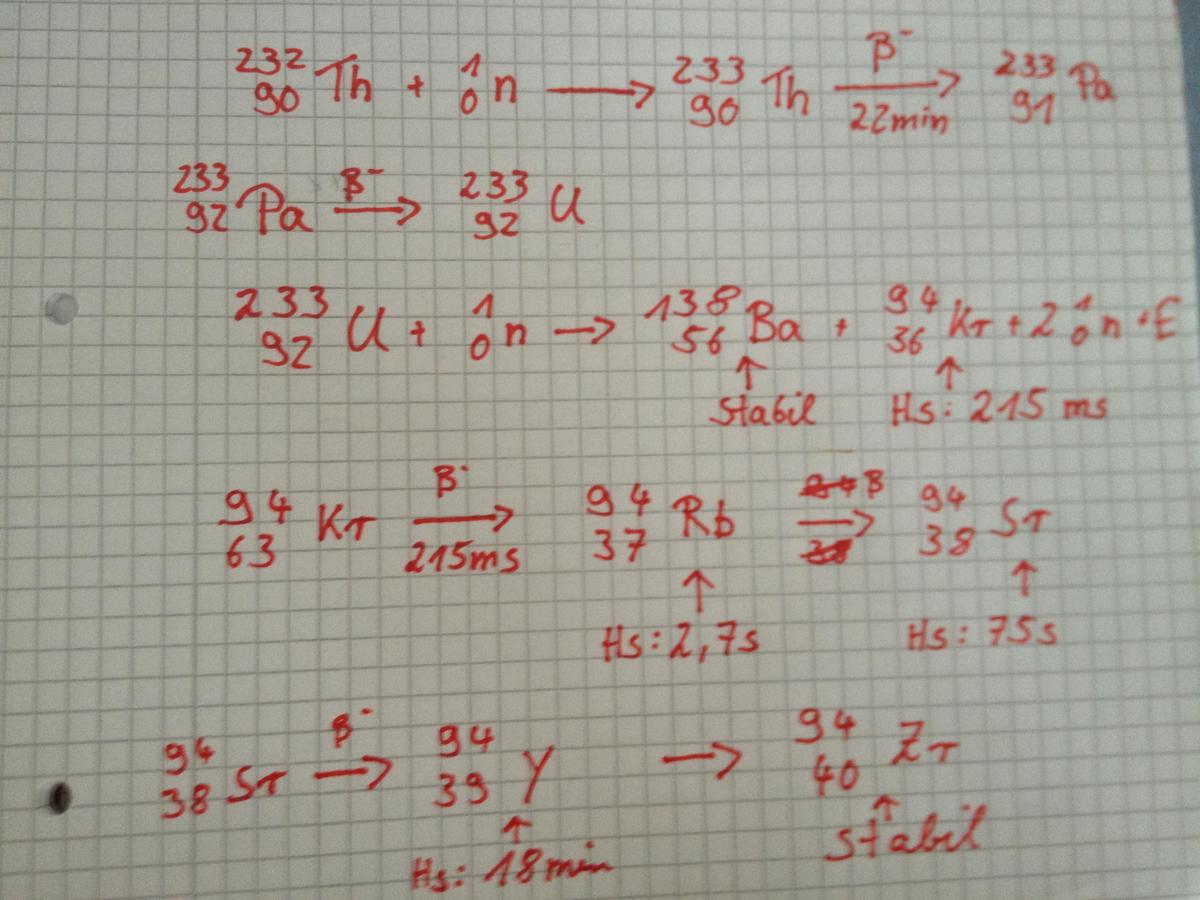 ²³²₉₀Th + ¹₀n ⟶ ²³³₉₀Th —β⁻/22min→ ²³³₉₁Pa
²³³₉₂Pa —β⁻→ ²³³₉₂U
²³³₉₂U + ¹₀n → ¹³⁸₅₆Ba + ⁹⁴₃₆Kr + 2 ¹₀n + E
↑ ↑
Stabil Hs: 215 ms
⁹⁴₆₃Kr —β⁻/215ms→ ⁹⁴₃₇Rb —β→ ⁹⁴₃₈Sr
↑ ↑
Hs: 2,7s Hs: 75s
⁹⁴₃₈Sr —β⁻→ ⁹⁴₃₉Y → ⁹⁴₄₀Zr
↑ ↑
Hs: 18min Stabil